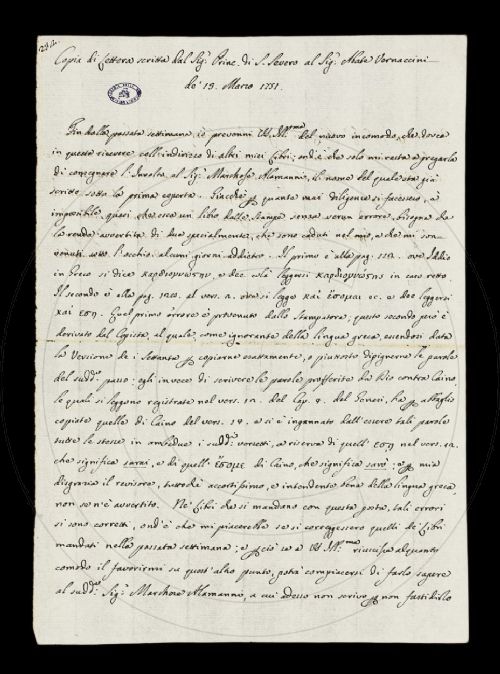 Copia di Lettera scritta dal Sig.r Princ. di S. Severo al Sig.r Abate Vernaccini
de' 19. Marzo 1751.
Fin dalla passata settimana io prevenni VS. Ill.ma del nuovo incomodo, che dovea
in questa ricevere coll'indirizzo di altri miei Libri; ond'è che solo mi resta a pregarla
di consegnare l'involto al Sig.r Marchese Alamanni, il nome del quale sta già
scritto sotto la prima coperta. Perchè quanto mai diligenza si facesse, è
impossibile quasi, che esca un libro dalle stampe senza verun errore, bisogna che
la renda avvertita di due specialmente, che sono caduti nel mio, e che mi son
venuti sotto l'occhio alcuni giorni addietro. Il primo è alla pag. ove Iddio
in Greco si dice καρδιογνώστην, e dee leggersi καρδιογνώστης in caso retto
Il secondo è alla pag. al vers. ove si legge καὶ ἔσομαι ec. e dee leggersi
καὶ ἔσῃ. Quel primo errore è provenuto dallo Stampatore; questo secondo però è
derivato dal Copista, al quale, come ignorante della lingua greca, essendosi data
la Versione de i Settanta per copiarne esattamente, o piuttosto dipignerne le parole
del sudd.o passo: egli invece di scrivere le parole profferite da Dio contra Caino,
le quali si leggono registrate nel vers. 12. del Cap. 4. del Genesi, ha per abbaglio
copiate quelle di Caino del vers. 14. e si è ingannato dall'essere tali parole
tutte le stesse in ambidue i sudd.i versetti, a riserva di quell'ἔσῃ nel vers. 12.
che significa sarai, e di quell'ἔσομαι di Caino, che significa sarò: e per mia
disgrazia il revisore, tuttochè accortissimo, e intendente bene della lingua greca,
non se n'è avvertito. Ne' Libri che si mandano con questa posta, tali errori
si sono corretti, ond'è che mi piacerebbe se si correggessero quelli de' Libri
mandati nella passata settimana; e perciò se a VS. Ill.ma riuscisse alquanto
comodo il favorirmi su quest'altro punto, potrà compiacersi di farlo sapere
al sudd.o Sig.r Marchese Alamanni, a cui adesso non scrivo per non fastidirlo